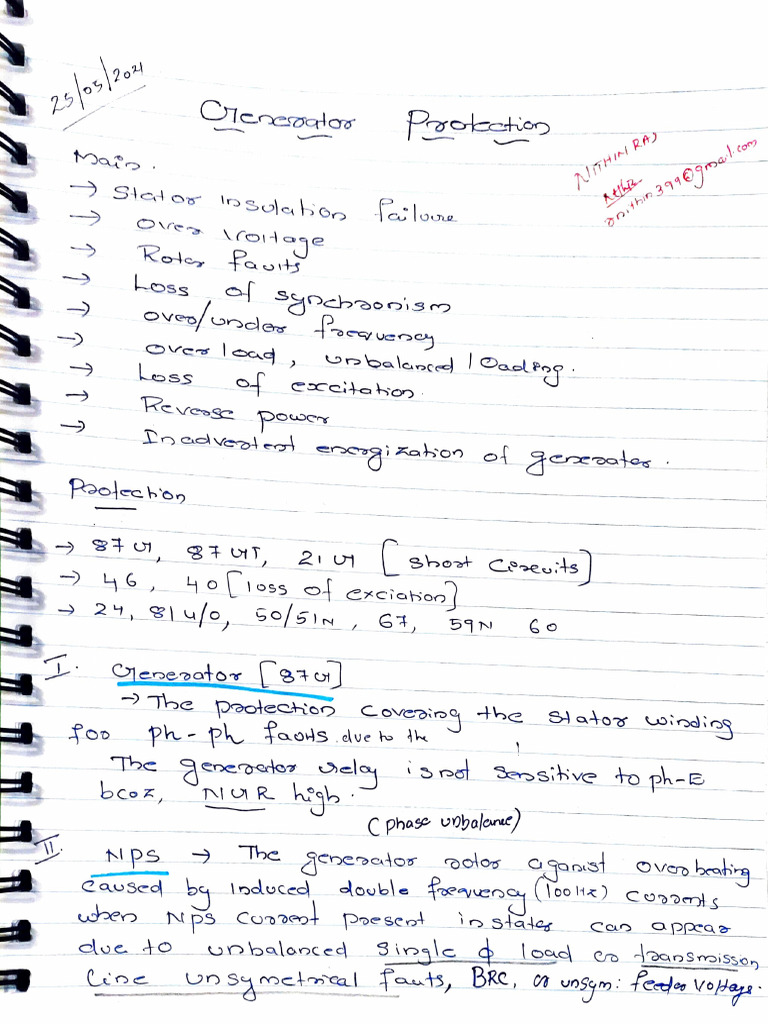 25/05/2021
Generator Protection
NITHIN RAJ
rnithin399@gmail.com
Main.
→ Stator insulation failure
→ over voltage
→ Rotor faults
→ Loss of synchronism
→ over/under frequency
→ over load, unbalanced loading.
→ Loss of excitation.
→ Reverse power
→ Inadvertent energization of generator.
Protection
→ 87G, 87GT, 21G [short circuits]
→ 46, 40 [loss of exciation]
→ 24, 81 u/o, 50/51N, 67, 59N 60
I. Generator [87G]
→ The protection covering the stator winding
for ph-ph faults due to the
The generator relay is not sensitive to ph-E
bcoz, NGR high.
(phase unbalance)
II. NPS → The generator rotor aganist overheating
caused by induced double frequency (100Hz) currents
when NPS current present in stator can appear
due to unbalanced single ɸ load or transmisson
line unsymetrical faults, BRC, or unsym: feeder voltage.